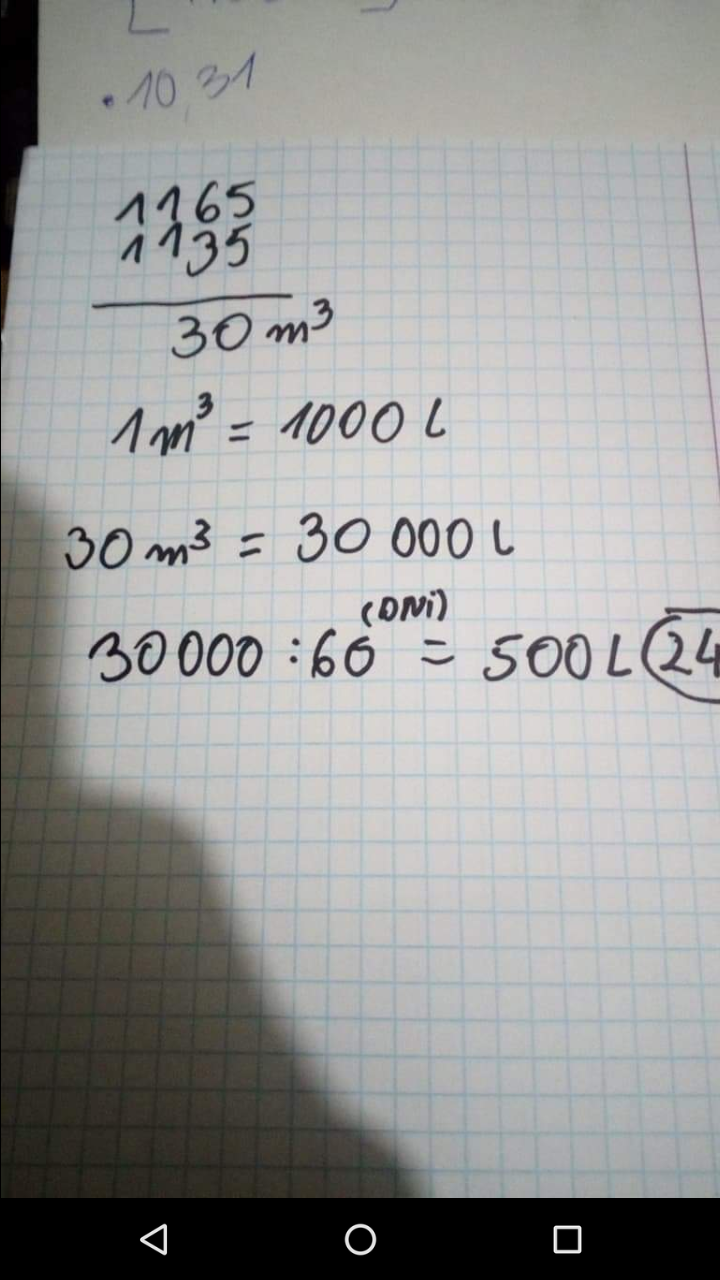 .10,31
1165
1135
30 m³
1m³ = 1000 l
30 m³ = 30 000 l
(DNi)
30000 : 60 = 500 L 24